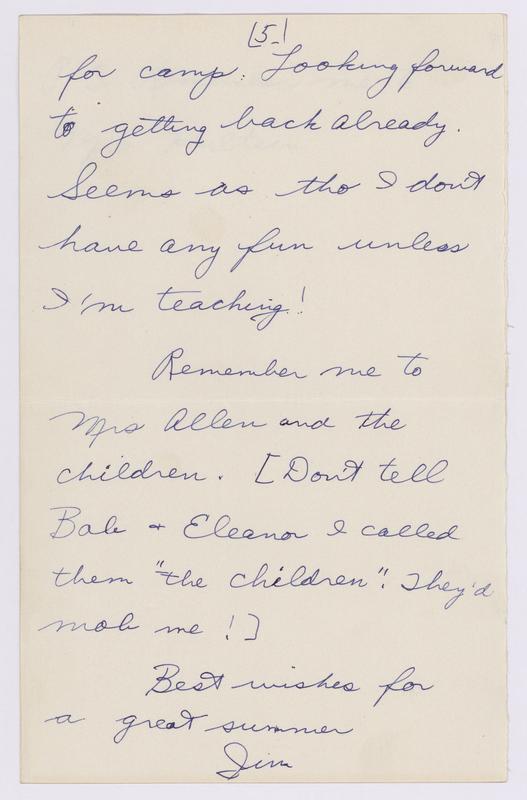 [5.]
for camp. Looking forward
to getting back already.
Seems as tho I don't
have any fun unless
I'm teaching!
Remember me to
Mrs Allen and the
children. [Don't tell
Bob & Eleanor I called
them "the children". They'd
mob me!]
Best wishes for
a great summer
Jim